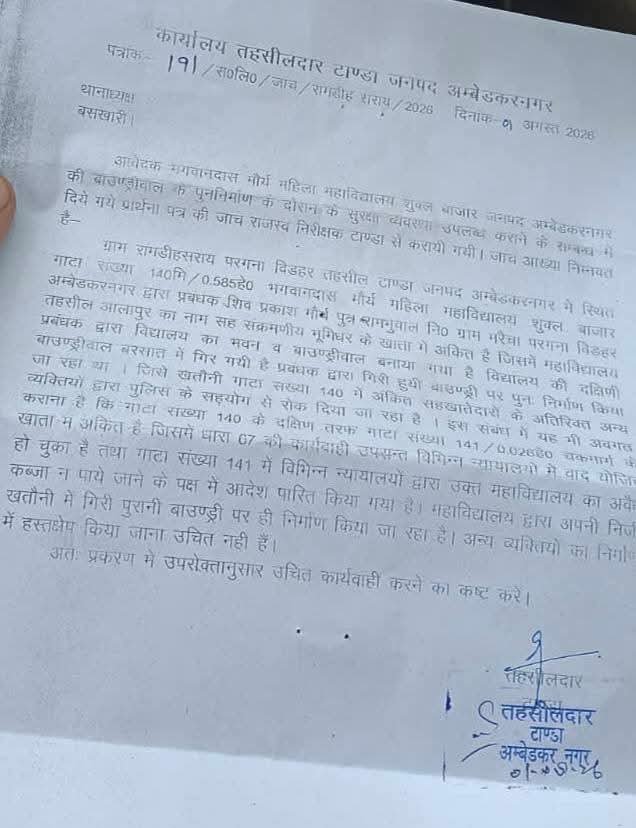 कार्यालय तहसीलदार टाण्डा जनपद अम्बेडकरनगर
पत्रांक- 191/स०लि०/जांच/रामडीह सराय/2026 दिनांक-01 अगस्त 2026
थानाध्यक्ष
बसखारी।
आवेदक भगवानदास मौर्य महिला महाविद्यालय शुक्ल बाजार जनपद अम्बेडकरनगर
की बाउण्ड्रीवाल के पुननिर्माण के दौरान के सुरक्षा व्यवस्था उपलब्ध कराने के सम्बन्ध में
दिये गये प्रार्थना पत्र की जांच राजस्व निरीक्षक टाण्डा से करायी गयी। जांच आख्या निम्नवत
है-
ग्राम रामडीहसराय परगना विडहर तहसील टाण्डा जनपद अम्बेडकरनगर में स्थित
गाटा संख्या 140मि/0.585हे० भगवानदास मौर्य महिला महाविद्यालय शुक्ल बाजार
अम्बेडकरनगर द्वारा प्रबंधक शिव प्रकाश मौर्य पुत्र नि० ग्राम परगना विडहर
तहसील आलापुर का नाम सह संक्रमणीय भूमिधर के खाता में अंकित है जिसमें महाविद्यालय
प्रबंधक द्वारा विद्यालय का भवन व बाउण्ड्रीवाल बनाया गया है विद्यालय की दक्षिणी
बाउण्ड्रीवाल बरसात में गिर गयी है प्रबंधक द्वारा गिरी हुयी बाउण्ड्री पर पुनः निर्माण किया
जा रहा था । जिसे खतौनी गाटा संख्या 140 में अंकित सहखातेदारों के अतिरिक्त अन्य
व्यक्तियों द्वारा पुलिस के सहयोग से रोक दिया जा रहा है । इस संबंध में यह भी अवगत
कराना है कि गाटा संख्या 140 के दक्षिण तरफ गाटा संख्या 141/0.026हे० चकमार्ग के
खाता में अंकित है जिसमें धारा 67 की कार्यवाही उपरान्त विभिन्न न्यायालयों में वाद योजित
हो चुका है तथा गाटा संख्या 141 में विभिन्न न्यायालयों द्वारा उक्त महाविद्यालय का अवै
कब्जा न पाये जाने के पक्ष में आदेश पारित किया गया है। महाविद्यालय द्वारा अपनी निजी
खतौनी में गिरी पुरानी बाउण्ड्री पर ही निर्माण किया जा रहा है। अन्य व्यक्तियों का निर्माण
में हस्तक्षेप किया जाना उचित नही हैं।
अतः प्रकरण में उपरोक्तानुसार उचित कार्यवाही करने का कष्ट करे।
तहसीलदार
तहसीलदार
टाण्डा
अम्बेडकर नगर